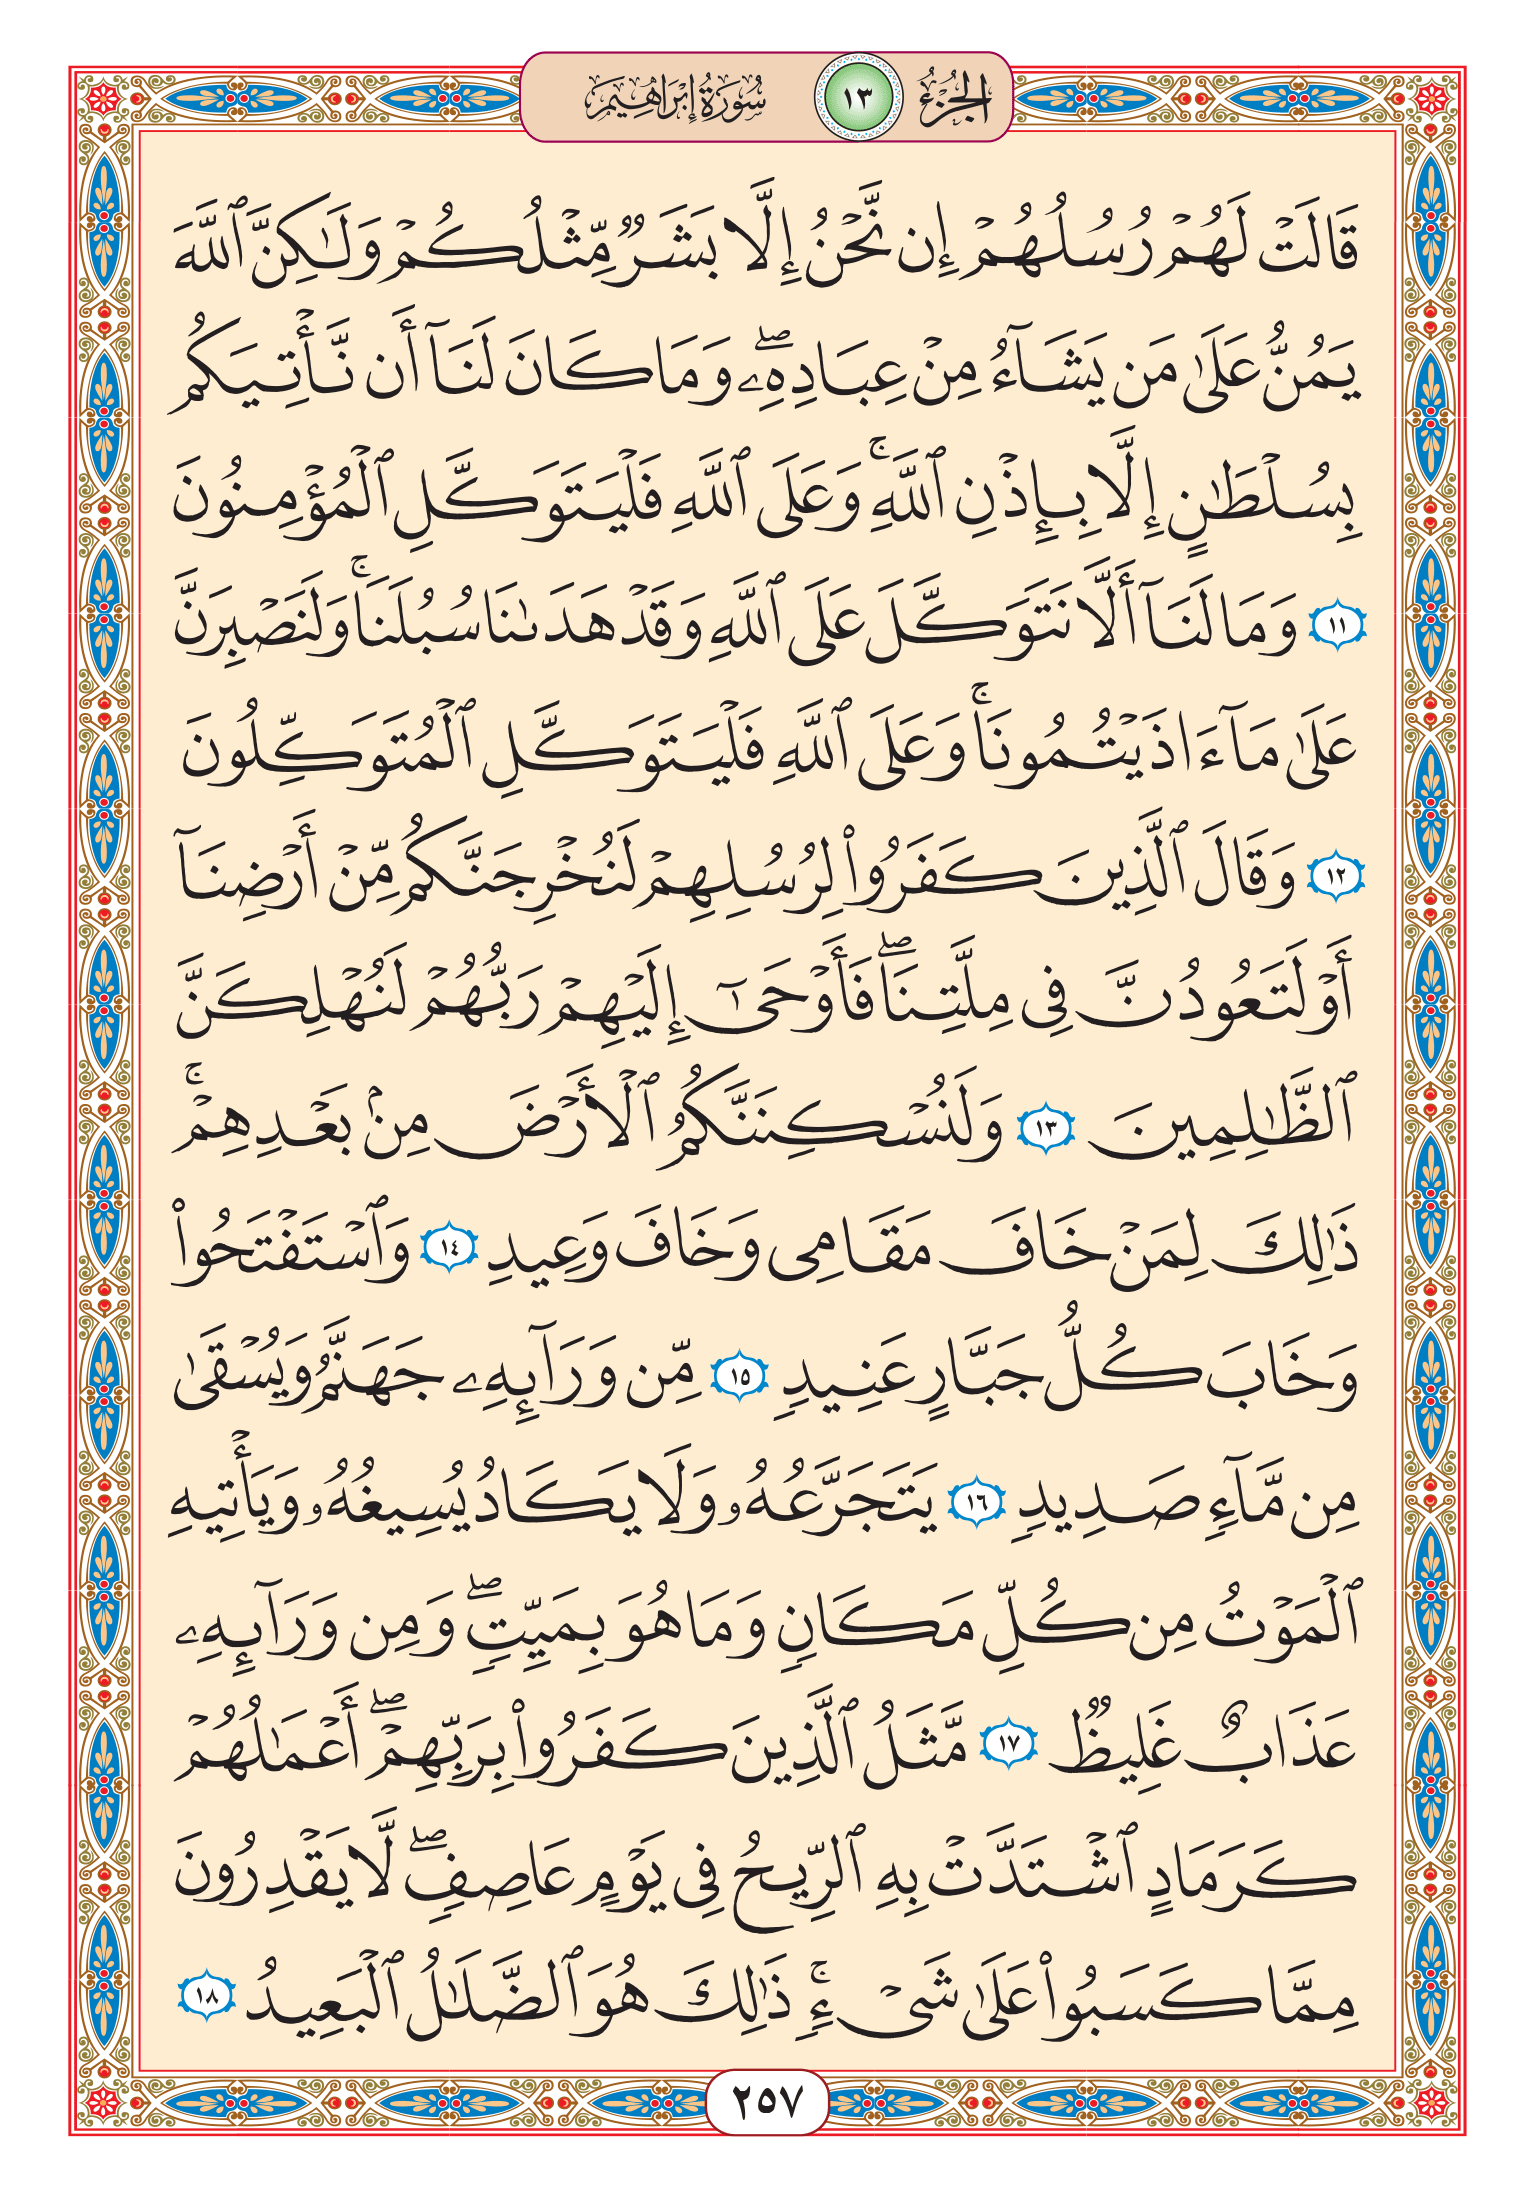 الجزء ١٣ سورة إبراهيم
قَالَتْ لَهُمْ رُسُلُهُمْ إِن نَّحْنُ إِلَّا بَشَرٌ مِّثْلُكُمْ وَلَٰكِنَّ ٱللَّهَ
يَمُنُّ عَلَىٰ مَن يَشَآءُ مِنْ عِبَادِهِۦۖ وَمَا كَانَ لَنَآ أَن نَّأْتِيَكُم
بِسُلْطَٰنٍ إِلَّا بِإِذْنِ ٱللَّهِۚ وَعَلَى ٱللَّهِ فَلْيَتَوَكَّلِ ٱلْمُؤْمِنُونَ
١١ وَمَا لَنَآ أَلَّا نَتَوَكَّلَ عَلَى ٱللَّهِ وَقَدْ هَدَىٰنَا سُبُلَنَاۚ وَلَنَصْبِرَنَّ
عَلَىٰ مَآ ءَاذَيْتُمُونَاۚ وَعَلَى ٱللَّهِ فَلْيَتَوَكَّلِ ٱلْمُتَوَكِّلُونَ
١٢ وَقَالَ ٱلَّذِينَ كَفَرُوا۟ لِرُسُلِهِمْ لَنُخْرِجَنَّكُم مِّنْ أَرْضِنَآ
أَوْ لَتَعُودُنَّ فِى مِلَّتِنَاۖ فَأَوْحَىٰٓ إِلَيْهِمْ رَبُّهُمْ لَنُهْلِكَنَّ
ٱلظَّٰلِمِينَ ١٣ وَلَنُسْكِنَنَّكُمُ ٱلْأَرْضَ مِنۢ بَعْدِهِمْۚ
ذَٰلِكَ لِمَنْ خَافَ مَقَامِى وَخَافَ وَعِيدِ ١٤ وَٱسْتَفْتَحُوا۟
وَخَابَ كُلُّ جَبَّارٍ عَنِيدٍ ١٥ مِّن وَرَآئِهِۦ جَهَنَّمُ وَيُسْقَىٰ
مِن مَّآءٍ صَدِيدٍ ١٦ يَتَجَرَّعُهُۥ وَلَا يَكَادُ يُسِيغُهُۥ وَيَأْتِيهِ
ٱلْمَوْتُ مِن كُلِّ مَكَانٍ وَمَا هُوَ بِمَيِّتٍۖ وَمِن وَرَآئِهِۦ
عَذَابٌ غَلِيظٌ ١٧ مَّثَلُ ٱلَّذِينَ كَفَرُوا۟ بِرَبِّهِمْۖ أَعْمَٰلُهُمْ
كَرَمَادٍ ٱشْتَدَّتْ بِهِ ٱلرِّيحُ فِى يَوْمٍ عَاصِفٍۖ لَّا يَقْدِرُونَ
مِمَّا كَسَبُوا۟ عَلَىٰ شَىْءٍۚ ذَٰلِكَ هُوَ ٱلضَّلَٰلُ ٱلْبَعِيدُ ١٨
٢٥٧